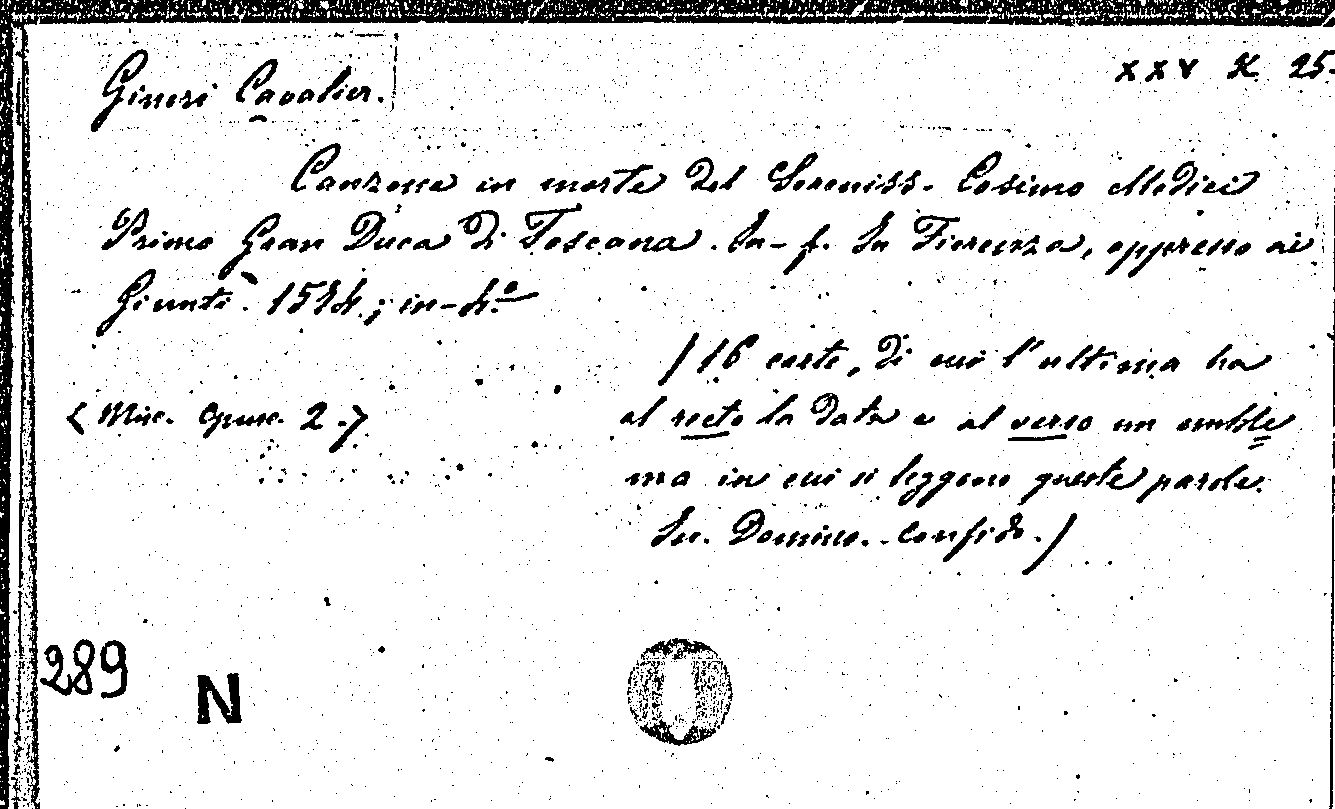 Ginori Cavalier.
XXV K 25.
Canzone in morte del Sereniss. Cosimo Medici
Primo Gran Duca di Toscana. In-f. In Fiorenza, appresso ai
Giunti. 1574.; in-4.º
(16 carte, di cui l'ultima ha
al recto la data e al verso un emble
ma in cui si leggono queste parole:
In. Domino. Confido.)
(Misc. Opusc. 2.)
289
N